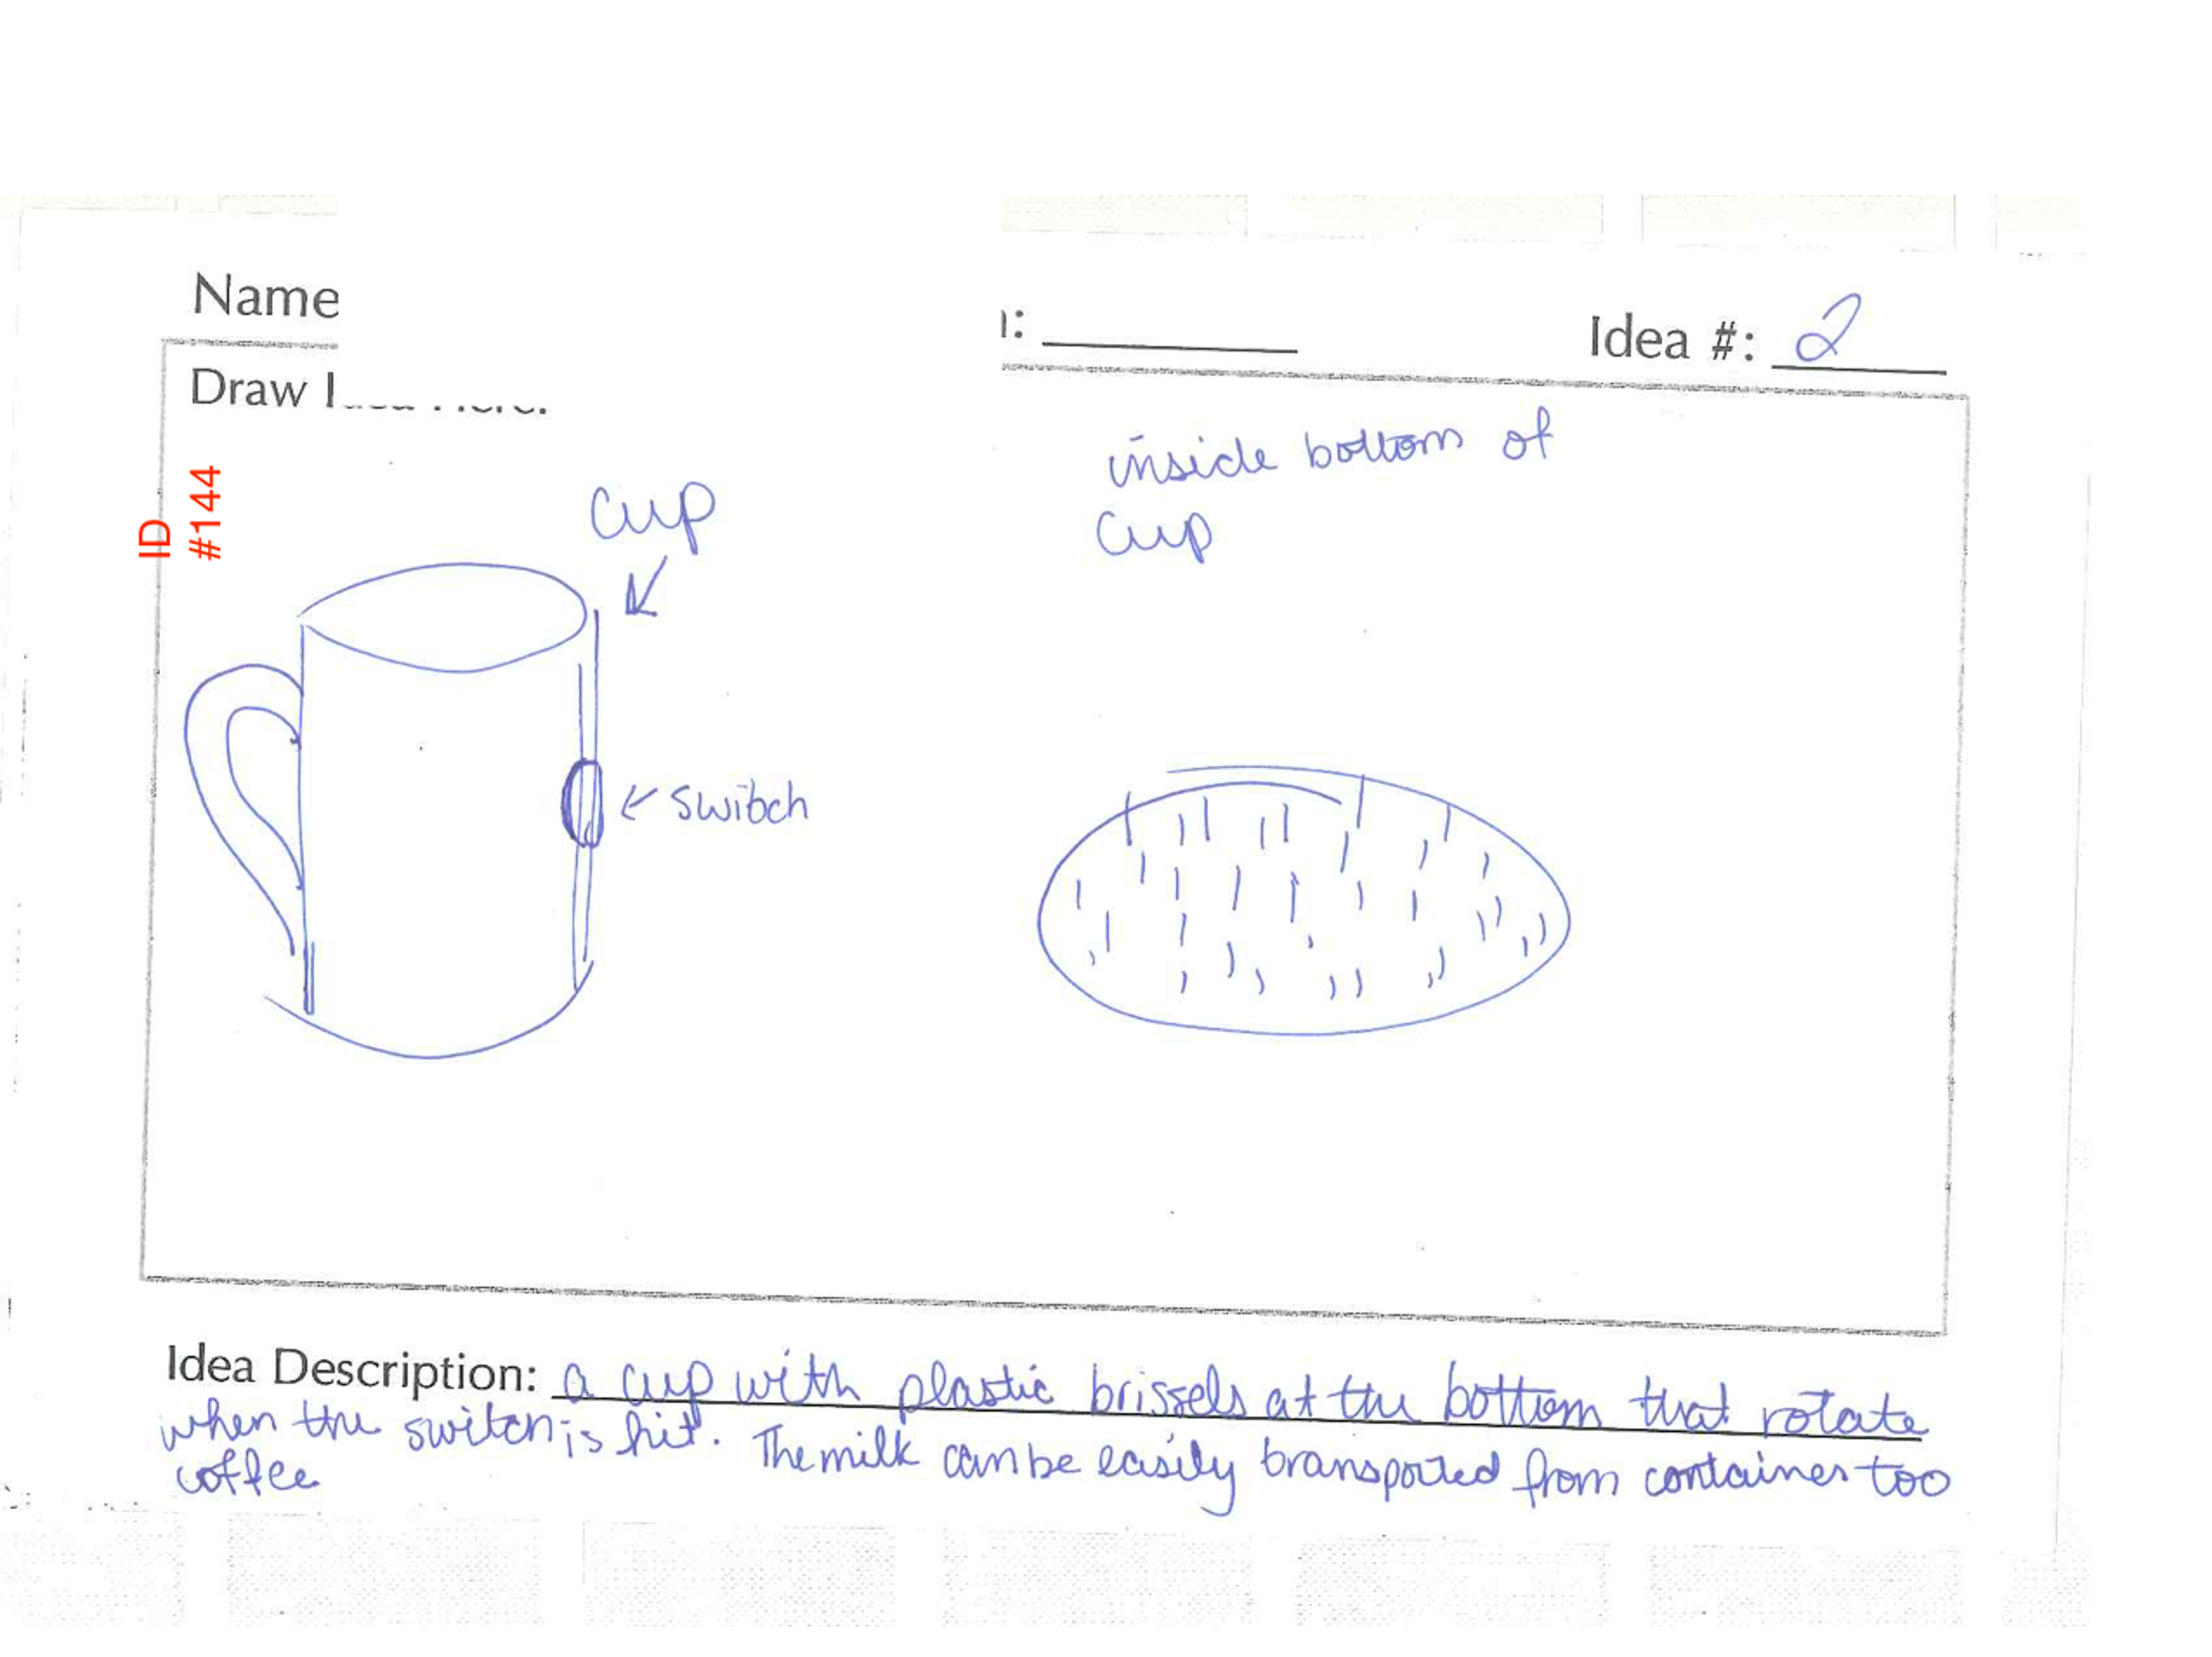 Name
): Idea #: 2
Draw I
ID
#144
inside bottom of
cup
cup
switch
Idea Description: a cup with plastic brissels at the bottom that rotate
when the switch is hit. The milk can be easily transported from container too
coffee